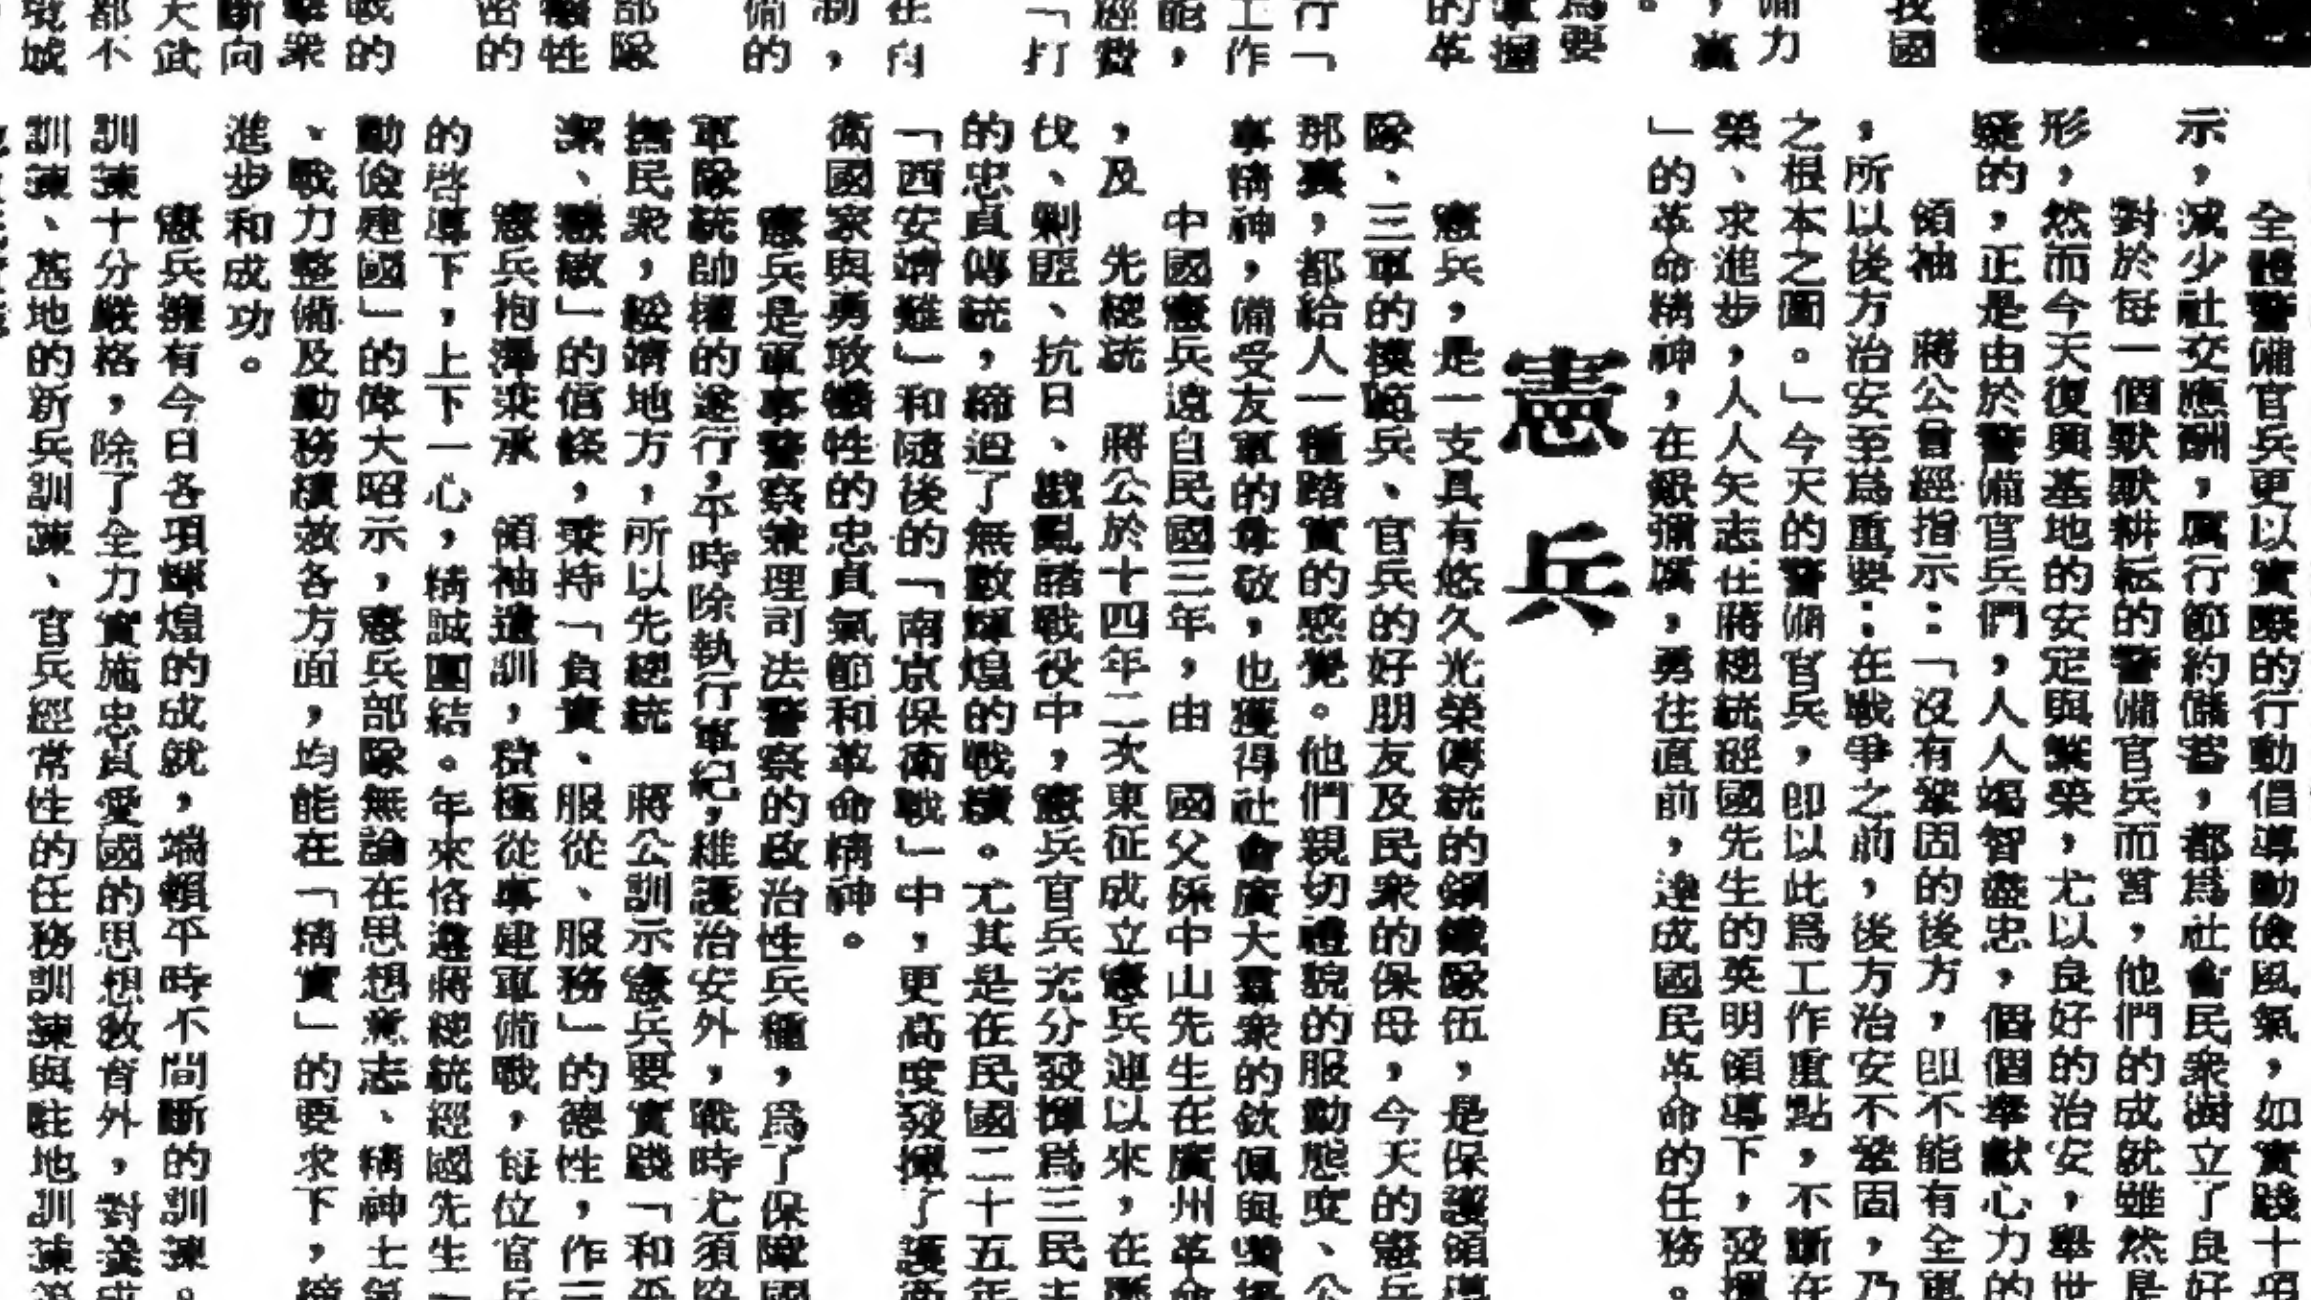 我國
備力
，裏
。
爲要
掌握
的革
行「
工作
能，
經費
「打
在自
制，
備的
部隊
犧牲
密的
戰的
擊衆
斷向
天武
都不
成城
全體警備官兵更以實際的行動倡導勤儉風氣，如實踐十項
示，減少社交應酬，厲行節約儲蓄，都爲社會民衆樹立了良好
對於每一個默默耕耘的警備官兵而言，他們的成就雖然是
形，然而今天復興基地的安定與繁榮，尤以良好的治安，舉世
疑的，正是由於警備官兵們，人人竭智盡忠，個個奉獻心力的
領袖　蔣公曾經指示：「沒有鞏固的後方，卽不能有全軍
，所以後方治安至爲重要：在戰爭之前，後方治安不鞏固，乃
之根本之圖。」今天的警備官兵，卽以此爲工作重點，不斷在
榮、求進步，人人矢志在蔣總統經國先生的英明領導下，發揮
」的革命精神，在級彌厲，勇往直前，達成國民革命的任務。
憲兵
憲兵，是一支具有悠久光榮傳統的鋼鐵隊伍，是保護領導
隊、三軍的模範兵、官兵的好朋友及民衆的保母，今天的憲兵
那裏，都給人一種踏實的感覺。他們親切禮貌的服勤態度、公
事精神，備受友軍的尊敬，也獲得社會廣大羣衆的欽佩與
中國憲兵遠自民國三年，由　國父孫中山先生在廣州革命
，及　先總統　蔣公於十四年二次東征成立憲兵連以來，在歷
伐、剿匪、抗日、戡亂諸戰役中，憲兵官兵充分發揮爲三民主
的忠貞傳統，締造了無數輝煌的戰績。尤其是在民國二十五年
「西安靖難」和隨後的「南京保衛戰」中，更高度發揮了護
衛國家與勇敢犧牲的忠貞氣節和革命精神。
憲兵是軍事警察兼理司法警察的政治性兵種，爲了保障國
軍隊統帥權的遂行，平時除執行軍紀，維護治安外，戰時尤須協
撫民衆，綏靖地方，所以先總統　蔣公訓示憲兵要實踐「和平
潔、慈敏」的信條，秉持「負責、服從、服務」的德性，作一
憲兵抱溥秉承　領袖遺訓，積極從事建軍備戰，每位官兵
的啓導下，上下一心，精誠團結。年來恪遵蔣總統經國先生「
勤儉建國」的偉大昭示，憲兵部隊無論在思想意志、精神士氣
、戰力整備及勤務績效各方面，均能在「精實」的要求下，締
進步和成功。
憲兵擁有今日各項輝煌的成就，端賴平時不間斷的訓練。
訓練十分嚴格，除了全力實施忠貞愛國的思想教育外，對養成
訓練、基地的新兵訓練、官兵經常性的任務訓練與駐地訓練